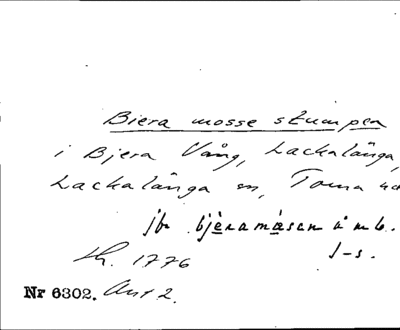 Biera mosse stumpen
i Bjera Vång, Lackalänga,
Lackalänga sn, Torna
jfr bjèramåsan å mb.
Lh. 1776 J-s.
Nr 6302. Ant 2.